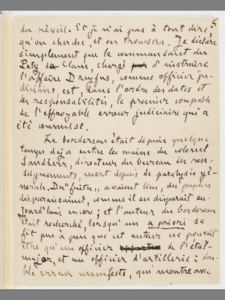 5
du réveil. Et je n'ai pas à tout dire,
qu'on cherche, et on trouvera. Je déclare
simplement que le commandant du
Paty de Clam, chargé d'instruire
l'affaire Dreyfus, comme officier ju-
diciaire, est, dans l'ordre des dates et
des responsabilités, le premier coupable
de l'effroyable erreur judiciaire qui a
été commise.
Le bordereau était depuis quelque
temps déjà entre les mains du colonel
Sandherr, directeur du bureau des ren-
seignements, mort depuis de paralysie gé-
nérale. Des "fuites" avaient lieu, des papiers
disparaissaient, comme il en disparaît au-
jourd'hui encore; et l'auteur du bordereau
était recherché, lorsqu'un a priori se
fit peu à peu que cet auteur ne pouvait
être qu'un officier de l'état-
major, et un officier d'artillerie: dou-
ble erreur manifeste, qui montre avec